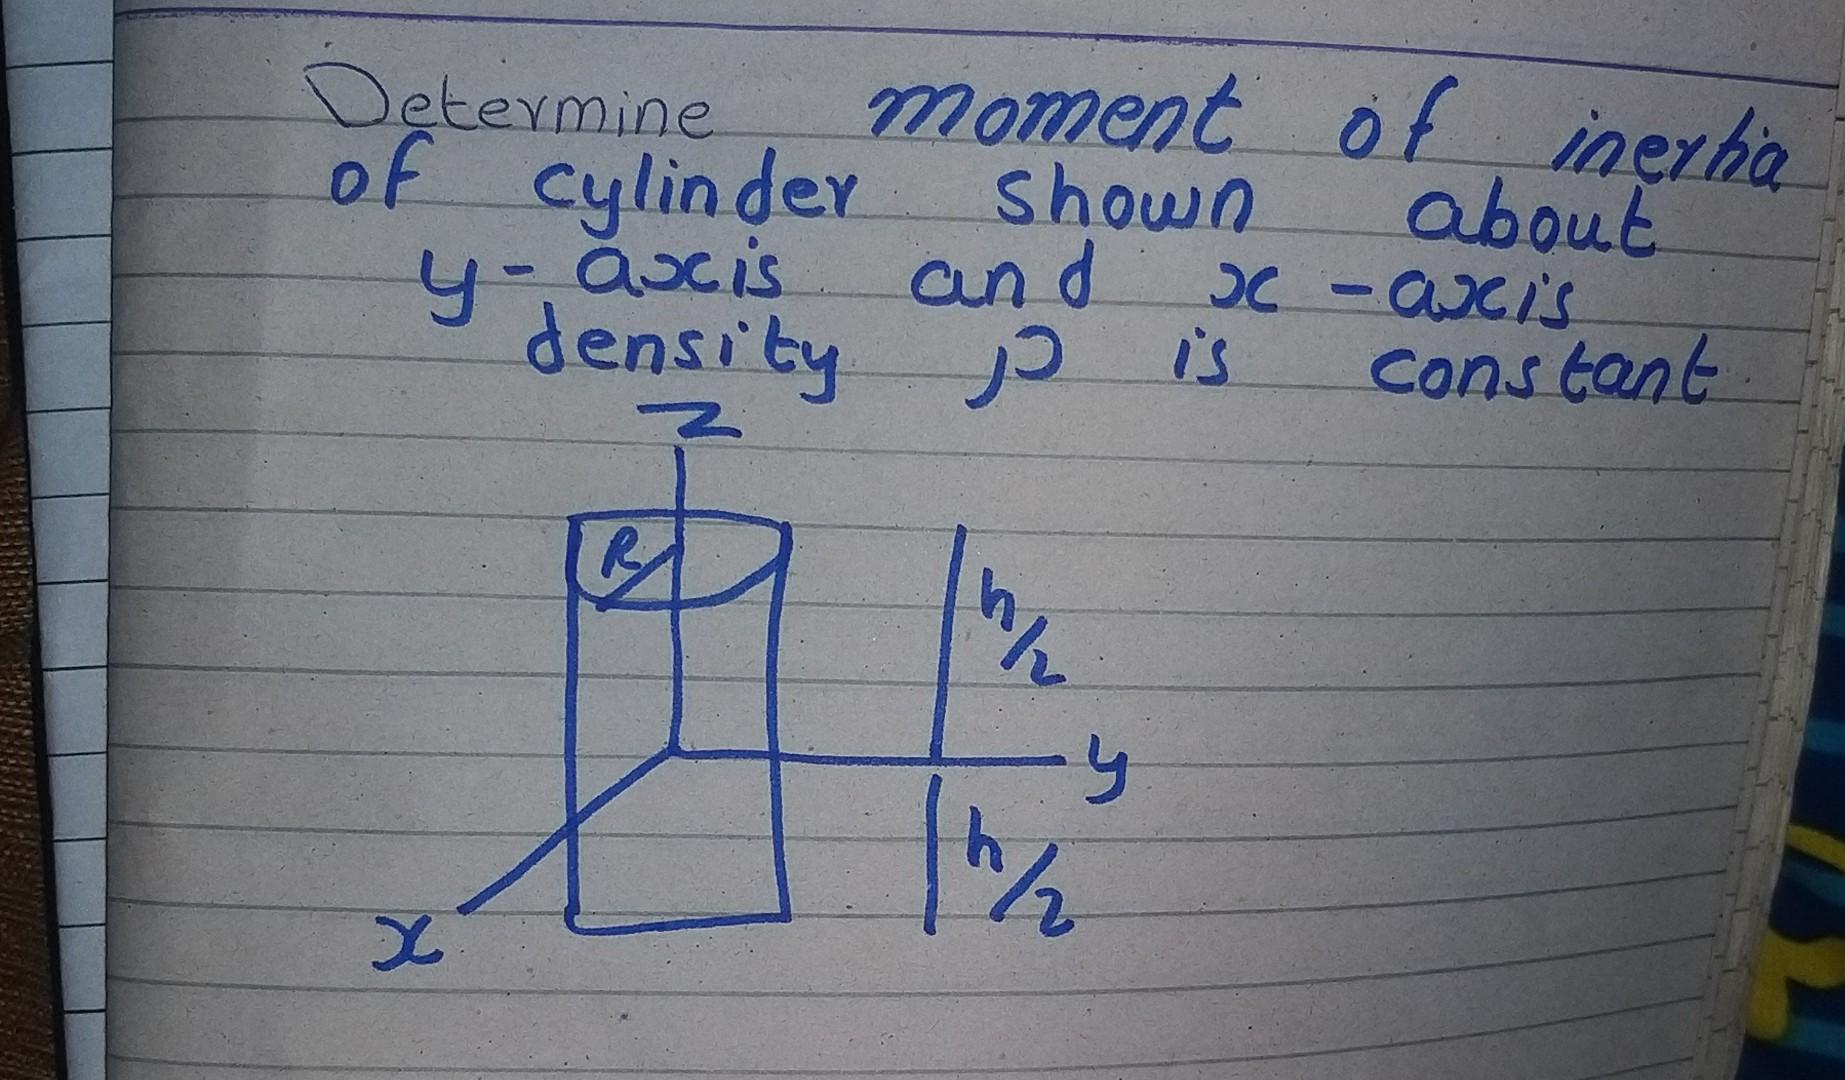 Determine moment of inertia
of cylinder shown about
y-axis and x-axis
density ρ is constant
z
R
h/2
y
h/2
x